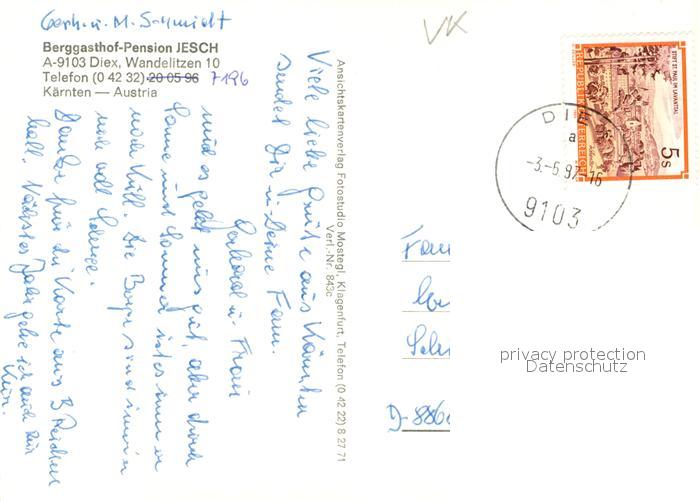 Gerh. u. M. Schmidt
Berggasthof-Pension JESCH
A-9103 Diex, Wandelitzen 10
Telefon (0 42 32) 20 05 96 7196
Kärnten — Austria
VK
Viele liebe Grüße aus Kärnten
sendet Dir u. Deine Fam.
Gerhard u. Frau
uns geht uns gut, aber durch
Sonne und immer ist es immer
noch kühl. Die Berge sind immer
noch voll Schnee.
Danke für die Karte aus B Reichen
hall. Nächstes Jahr gehe ich auch zur
Kur.
Ansichtskartenverlag Fotostudio Mostegl, Klagenfurt, Telefon (0 42 22) 8 27 71
Verl.-Nr. 843c
REPUBLIK ÖSTERREICH
STIFT ST. PAUL IM LAVANTTAL
5s
DIEX
a
-3.-6.97-16
9103
Fam
Schu
D-886
privacy protection
Datenschutz